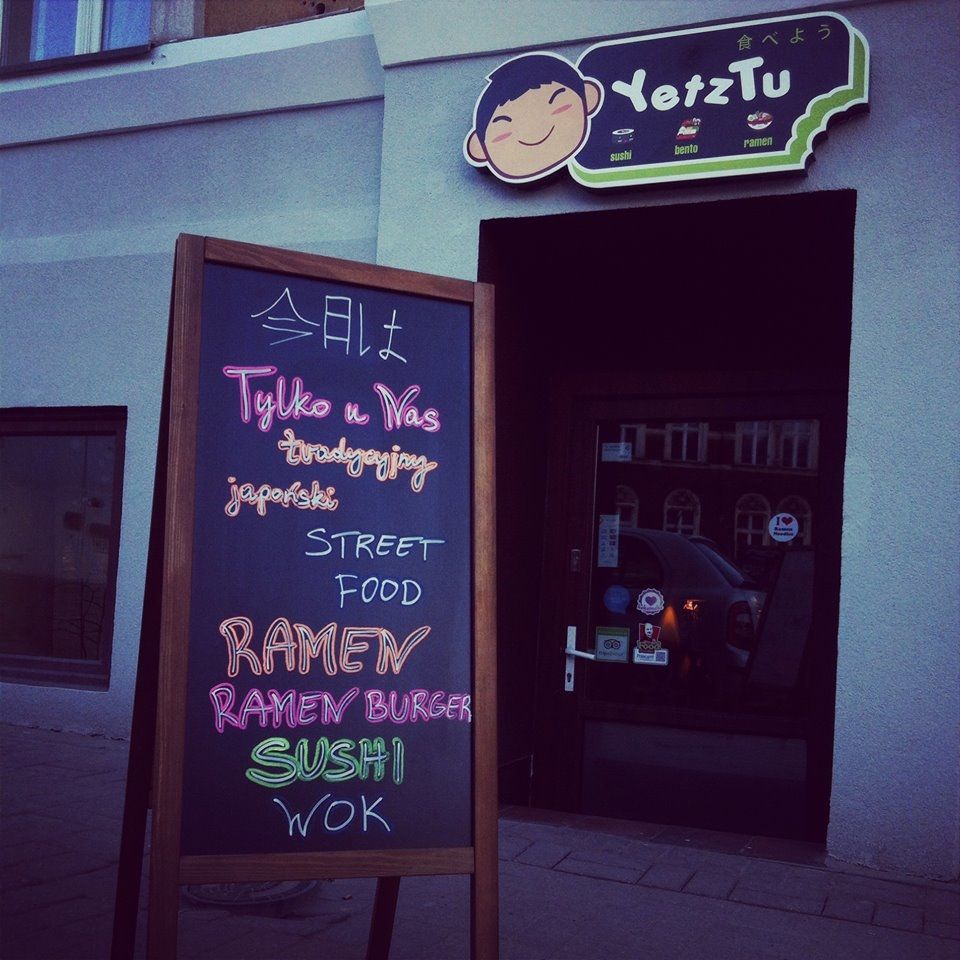 食べよう
YetzTu
sushi
bento
ramen
今日は
Tylko u Nas
tradycyjny
japoński
STREET
FOOD
RAMEN
RAMEN BURGER
SUSHI
WOK
I ❤
Ramen
Noodles